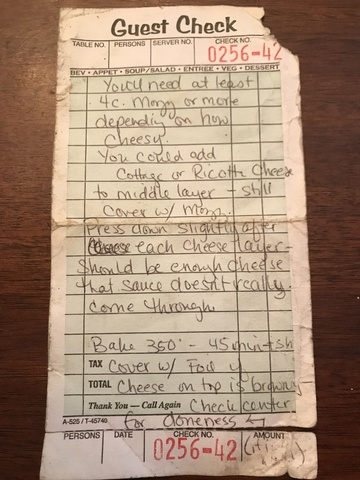 Guest Check
TABLE NO. PERSONS SERVER NO. CHECK NO.
0256-42
BEV • APPET • SOUP/SALAD • ENTREE • VEG • DESSERT
You'll need at least
4c. Mozz or more
depending on how
Cheesy.
You could add
Cottage or Ricotta Cheese
to middle layer - still
Cover w/ Mozz.
Press down slightly after
each cheese layer-
should be enough cheese
that sauce doesn't really
come through.
Bake 350° - 45 min
TAX Cover w/ Foil if
TOTAL Cheese on top is browning
Thank You — Call Again Check center
A-525 / T-45740 for doneness
PERSONS DATE CHECK NO. AMOUNT
0256-42